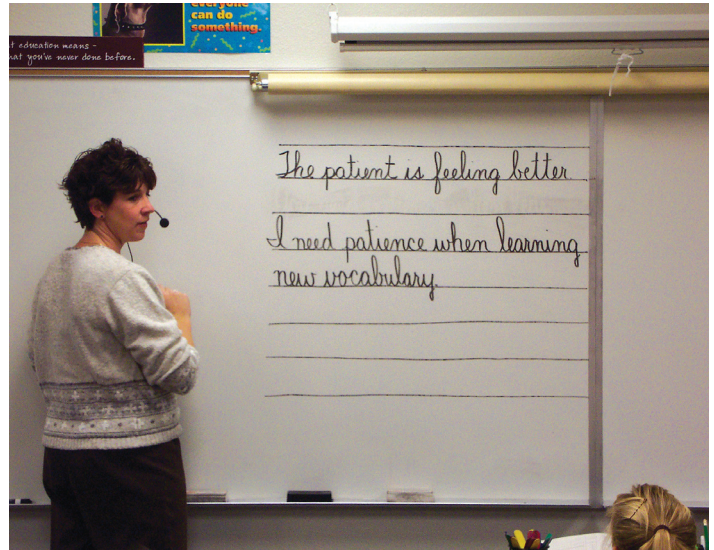 everyone
can do
something.
t education means -
hat you've never done before.
The patient is feeling better
I need patience when learning
new vocabulary.